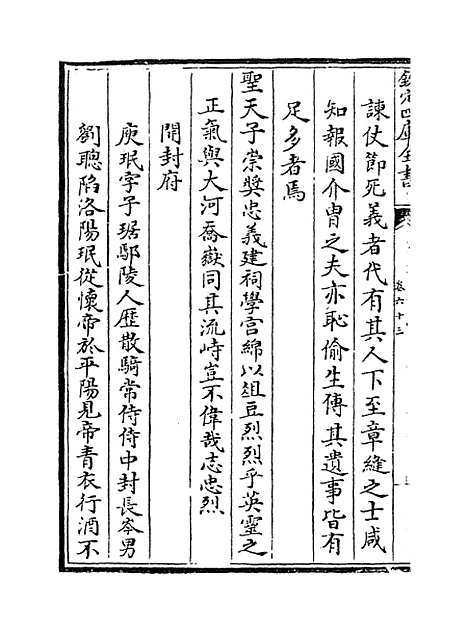 欽定四庫全書
卷六十三
諫仗節死義者代有其人下至章縫之士咸
知報國介胄之夫亦恥偷生傳其遺事皆有
足多者焉
聖天子崇奬忠義建祠學宫綿以俎豆烈烈乎英靈之
正氣與大河喬嶽同其流峙豈不偉哉志忠烈
開封府
庾珉字子琚鄢陵人歷散騎常侍侍中封長岑男
劉聰陷洛陽珉從懷帝於平陽見帝青衣行酒不